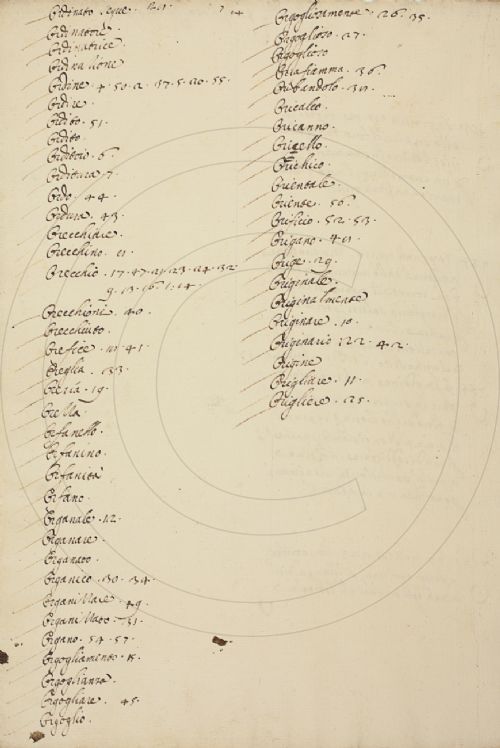 Ordinato
Ordinatore
Ordinatrice
Ordinazione
Ordine
Ordire
Ordito . 51 .
Ordito
Orditoio . 6 .
Orditura 7 .
Ordo . 44 .
Ordura . 43 .
Orecchiare
Orecchino . 11 .
Orecchio
Orecchione . 40 .
Orecchiuto .
Orefice
Oreglia . 33 .
Orella
Orfanello .
Orfanino .
Orfanità
Orfano .
Organale . 12 .
Organare .
Organato
Organico . 30 . 34 .
Organo . 54 . 57 .
Orgogliamento
Orgoglianza .
Orgogliare . 45 .
Orgoglio .
Orgogliosamente . 26 . 35 .
Orgoglioso . 27 .
Orgoglioso
Oriafiamma . 36 .
Oricalco .
Oricanno .
Oricello .
Orichico .
Orientale .
Oriente . 56 .
Orificio . 52 . 53 .
Origano
Orige . 29 .
Originale .
Originalmente
Originare . 10 .
Originario
Origine
Origliare . 11 .
Origliere . 25 .